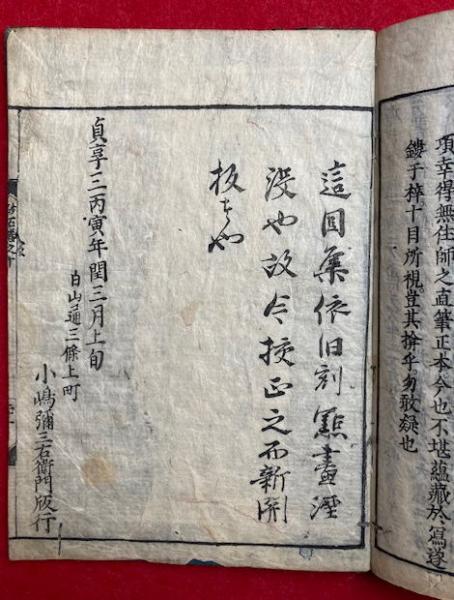 項幸得無住師之直筆正本今也不堪蘊藏於寫遂
鏤于梓十目所視豈其揜乎勿敢疑也
這回集依旧刻㸃畫湮
没也故今挍正之而新開
板者也
貞享三丙寅年閏三月上旬
白山通三條上町
小嶋彌三右衞門版行